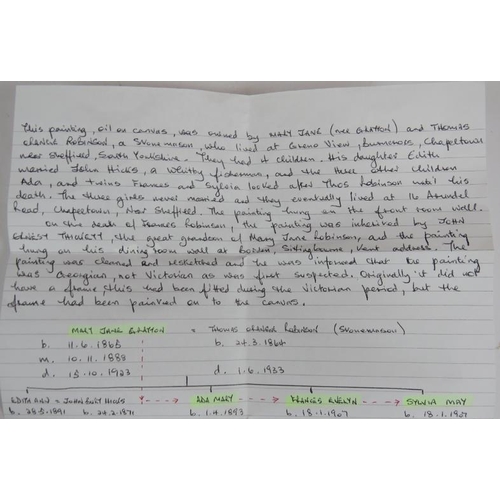 This painting, oil on canvas, was owned by MARY JANE (nee GRATTON) and THOMAS
ORANGE ROBINSON, a stonemason, who lived at Greno View, Burncross, Chapeltown
near Sheffield, South Yorkshire. They had 4 children. His daughter Edith
married John Hicks, a Whitby fisherman, and the three other children
Ada, and twins Frances and Sylvia looked after Thos Robinson until his
death. The three girls never married and they eventually lived at 16 Arundel
Road, Chapeltown, Near Sheffield. The painting hung on the front room wall.
On the death of Frances Robinson, the painting was inherited by JOHN
ERNEST THICKETT, the great grandson of Mary Jane Robinson, and the painting
hung on his dining room wall at Borden, Sittingbourne, Kent address. The
painting was cleaned and restretched and he was informed that the painting
was Georgian, not Victorian as was first suspected. Originally it did not
have a frame, this had been fitted during the Victorian period, but the
frame had been painted on to the canvas.
MARY JANE GRATTON = THOMAS ORANGE ROBINSON (STONEMASON)
b. 11.6.1865 b. 24.3.1864
m. 10.11.1888
d. 15.10.1923 d. 1.6.1933
EDITH ANN = JOHN BURY HICKS ADA MARY FRANCES EVELYN SYLVIA MAY
b. 28.5.1891 b. 24.2.1871 b. 1.4.1893 b. 18.1.1907 b. 18.1.1907